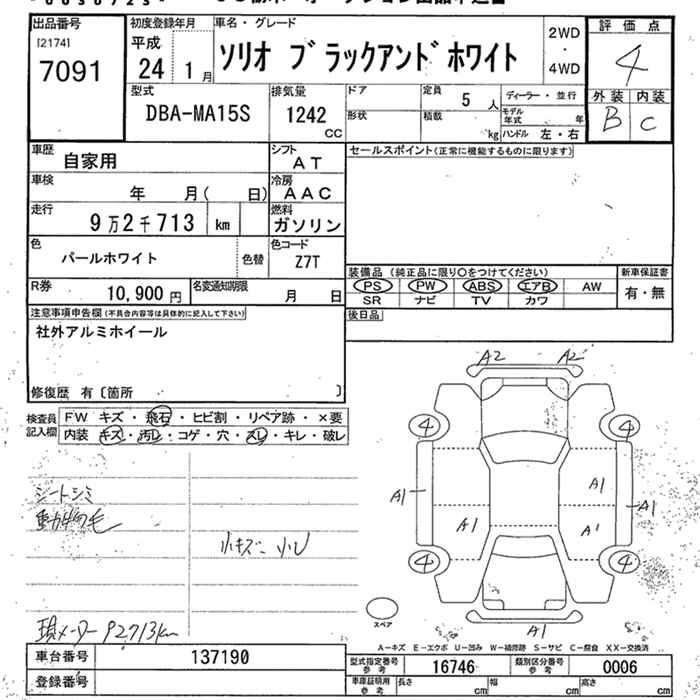 出品番号
[2174]
7091
初度登録年月
平成
24 1月
車名・グレード
ソリオ ブラックアンドホワイト
2WD
・
4WD
評価点
4
外装 内装
B C
型式
DBA-MA15S
排気量
1242
CC
ドア
形状
定員 5人
積載 kg
ディーラー・並行
モデル年式 年
ハンドル 左・右
車歴 自家用
シフト AT
セールスポイント(正常に機能するものに限ります)
車検 年 月( 日)
冷房 AAC
走行 9万2千713 km
燃料 ガソリン
色 パールホワイト 色替
色コード Z7T
装備品 (純正品に限り○をつけてください)
新車保証書
PS PW ABS エアB AW
有・無
SR ナビ TV カワ
R券 10,900円
名変通知期限 月 日
後日品
注意事項申告欄(不具合内容等は具体的に記入して下さい)
社外アルミホイール
修復歴 有〔箇所 〕
検査員記入欄
FW キズ・飛石・ヒビ割・リペア跡・×要
内装 キズ・汚レ・コゲ・穴・スレ・キレ・破レ
シートシミ
動物毛
小キズ 小U
現メーター92713km
A2 A2
4 4
A1 A1
A1
A1 A1
4 4
スペア
A1
A-キズ E-エクボ U-凹み W-補修跡 S-サビ C-腐食 XX-交換済
車台番号 137190
登録番号
型式指定番号参考 16746
類別区分番号参考 0006
車庫証明用参考 長さ cm 幅 cm 高さ cm